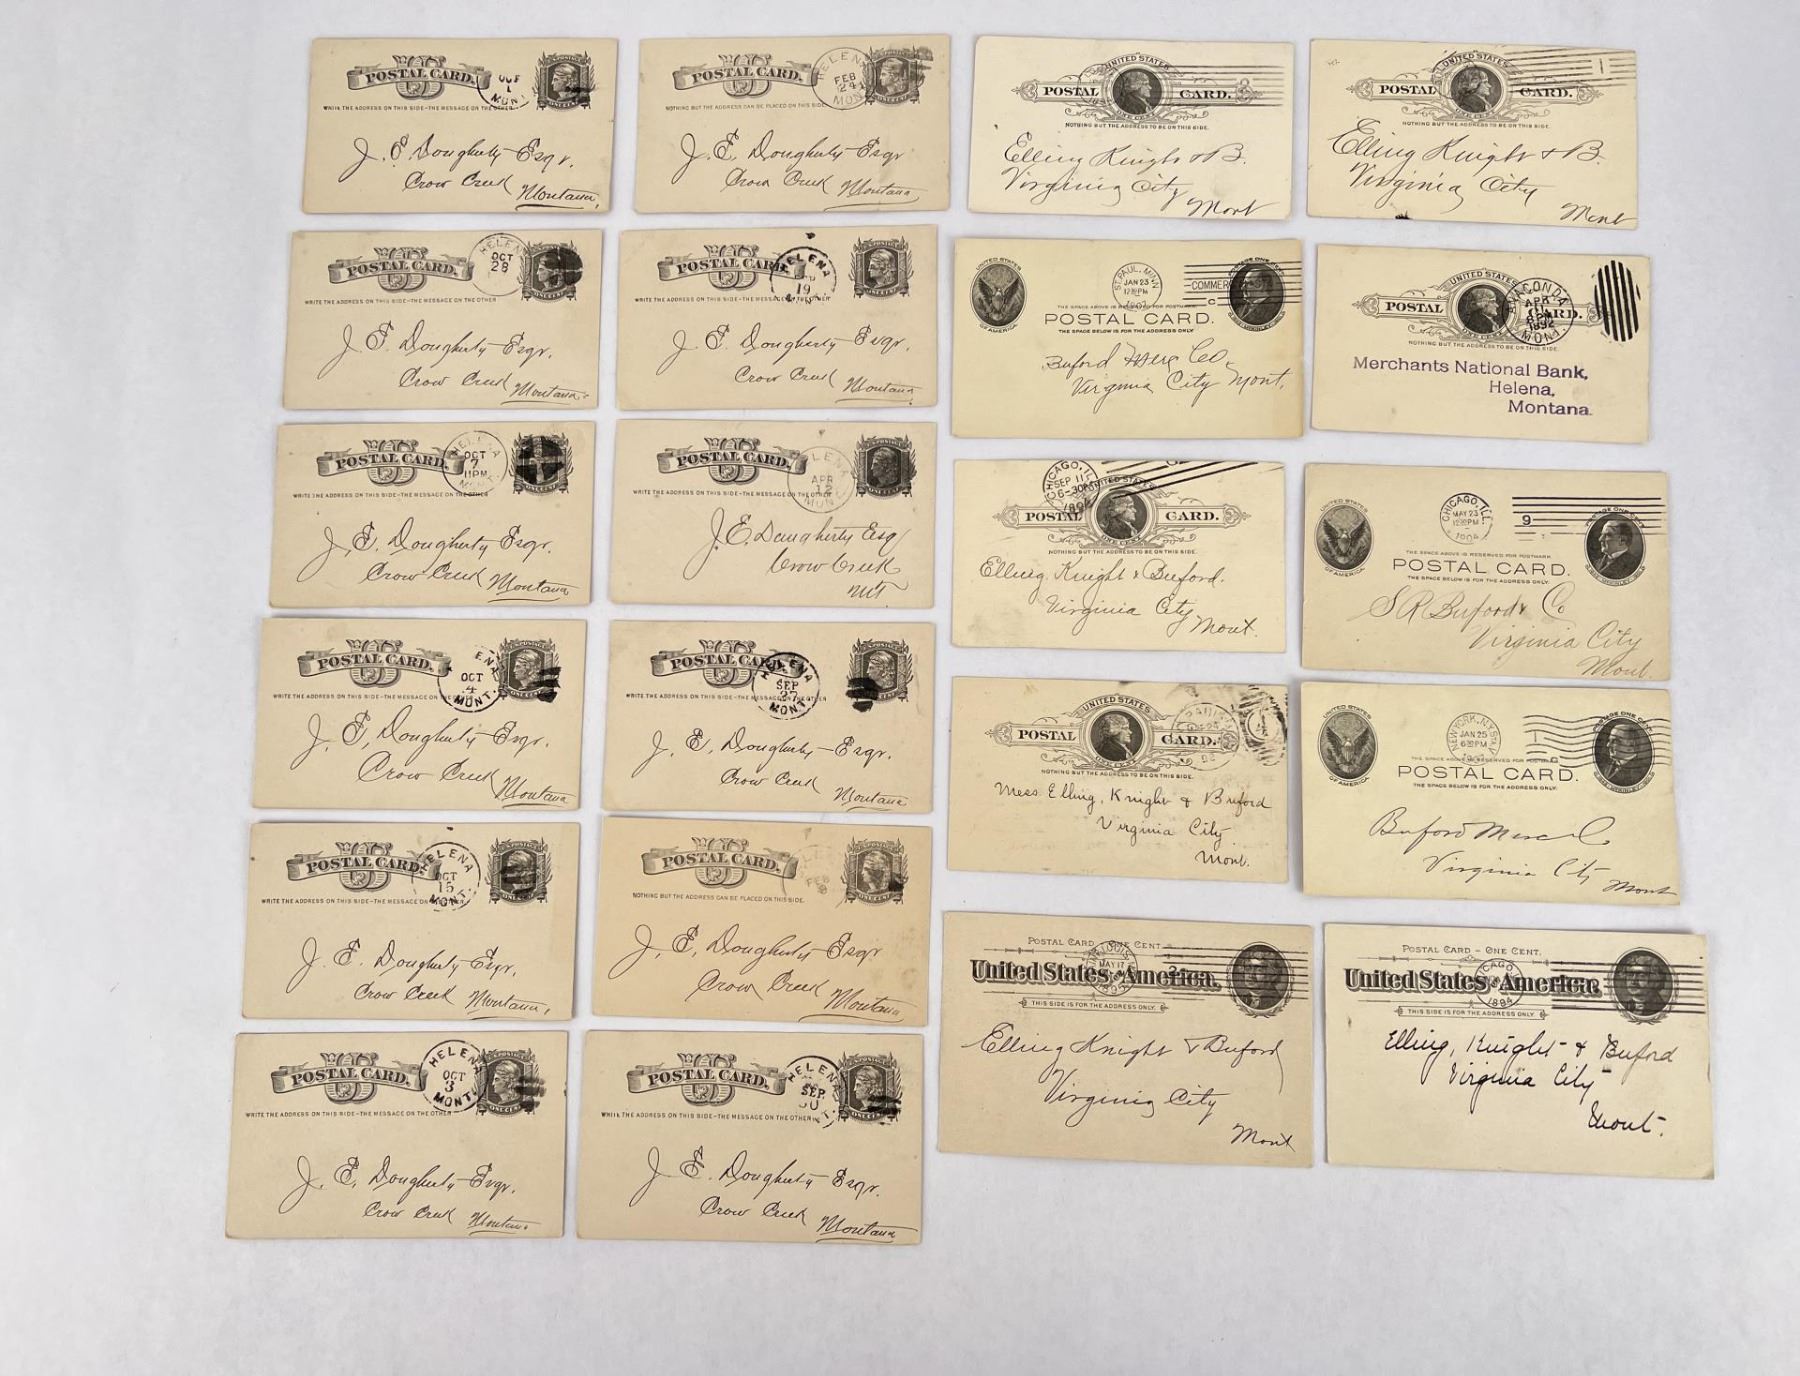 POSTAL CARD.
THE ADDRESS ON THIS SIDE-THE MESSAGE ON THE OTHER
OCT
1
MONT.
ONE CENT
J. E. Dougherty-Esqr.
Crow Creek
Montana,
POSTAL CARD.
NOTHING BUT THE ADDRESS CAN BE PLACED ON THIS SIDE.
HELENA
FEB
24
MONT
ONE CENT
J. E. Dougherty-Esqr
Crow Creek
Montana
UNITED STATES
POSTAL CARD.
ONE CENT
NOTHING BUT THE ADDRESS TO BE ON THIS SIDE.
Elling Knight & B.
Virginia City
Mont
UNITED STATES
POSTAL CARD.
ONE CENT
NOTHING BUT THE ADDRESS TO BE ON THIS SIDE.
1
Elling Knight & B.
Virginia City
Mont
POSTAL CARD.
WRITE THE ADDRESS ON THIS SIDE-THE MESSAGE ON THE OTHER
HELENA
OCT
28
J. E. Dougherty-Esqr.
Crow Creek
Montana.
POSTAL CARD.
WRITE THE ADDRESS ON THIS SIDE-THE MESSAGE ON THE OTHER
HELENA
19
ONE CENT
J. E. Dougherty-Esqr.
Crow Creek
Montana,
UNITED STATES
OF AMERICA
ST. PAUL, MINN
JAN 23
12-30PM
1903
COMMER
C
THE SPACE ABOVE IS RESERVED FOR POSTMARK.
POSTAL CARD.
THE SPACE BELOW IS FOR THE ADDRESS ONLY.
Buford Merc Co.
Virginia City Mont.
UNITED STATES
POSTAL CARD.
ONE CENT
NOTHING BUT THE ADDRESS TO BE ON THIS SIDE.
ANACONDA
APR
11
1892
MONT.
Merchants National Bank,
Helena,
Montana.
POSTAL CARD.
WRITE THE ADDRESS ON THIS SIDE-THE MESSAGE ON THE OTHER
HELENA
OCT
7
11PM
MONT.
ONE CENT
J. E. Dougherty-Esqr.
Crow Creek
Montana
POSTAL CARD.
WRITE THE ADDRESS ON THIS SIDE-THE MESSAGE ON THE OTHER
HELENA
APR
12
MONT
ONE CENT
J. E. Daugherty Esq
Crow Creek
MT
CHICAGO, ILL
SEP 11
6-30PM
1894
UNITED STATES
POSTAL CARD.
ONE CENT
NOTHING BUT THE ADDRESS TO BE ON THIS SIDE.
Elling, Knight & Buford.
Virginia City
Mont.
UNITED STATES
OF AMERICA
CHICAGO, ILL.
MAY 23
12-30PM
1904
9
THE SPACE ABOVE IS RESERVED FOR POSTMARK.
POSTAL CARD.
THE SPACE BELOW IS FOR THE ADDRESS ONLY.
S R Buford & Co
Virginia City
Mont.
POSTAL CARD.
WRITE THE ADDRESS ON THIS SIDE-THE MESSAGE ON THE OTHER
OCT
4
MONT.
ONE CENT
J. E, Dougherty-Esqr.
Crow Creek
Montana
POSTAL CARD.
WRITE THE ADDRESS ON THIS SIDE-THE MESSAGE ON THE OTHER
HELENA
SEP
27
MONT.
ONE CENT
J. E, Dougherty-Esqr.
Crow Creek
Montana
UNITED STATES
POSTAL CARD.
ONE CENT
NOTHING BUT THE ADDRESS TO BE ON THIS SIDE.
92
Mess Elling, Knight & Buford
Virginia City
Mont.
UNITED STATES
OF AMERICA
NEW YORK, N.Y.
JAN 25
6-30PM
THE SPACE ABOVE IS RESERVED FOR POSTMARK.
POSTAL CARD.
THE SPACE BELOW IS FOR THE ADDRESS ONLY.
Buford Merc Co
Virginia City Mont
POSTAL CARD.
WRITE THE ADDRESS ON THIS SIDE-THE MESSAGE ON THE OTHER
HELENA
OCT
15
MONT.
ONE CENT
J. E. Dougherty-Esqr.
Crow Creek
Montana,
POSTAL CARD.
NOTHING BUT THE ADDRESS CAN BE PLACED ON THIS SIDE.
FEB
ONE CENT
J. E, Dougherty-Esqr
Crow Creek
Montana
POSTAL CARD - ONE CENT.
United States of America.
THIS SIDE IS FOR THE ADDRESS ONLY.
MAY 17
Elling Knight & Buford
Virginia City
Mont
POSTAL CARD - ONE CENT.
United States of America.
THIS SIDE IS FOR THE ADDRESS ONLY.
CHICAGO
1894
Elling, Knight & Buford
Virginia City
Mont.
POSTAL CARD.
WRITE THE ADDRESS ON THIS SIDE-THE MESSAGE ON THE OTHER
HELENA
OCT
3
MONT.
ONE CENT
J. E, Dougherty-Esqr.
Crow Creek
Montana
POSTAL CARD.
THE ADDRESS ON THIS SIDE-THE MESSAGE ON THE OTHER
HELENA
SEP
30
ONE CENT
J. E. Dougherty Esqr.
Crow Creek
Montana